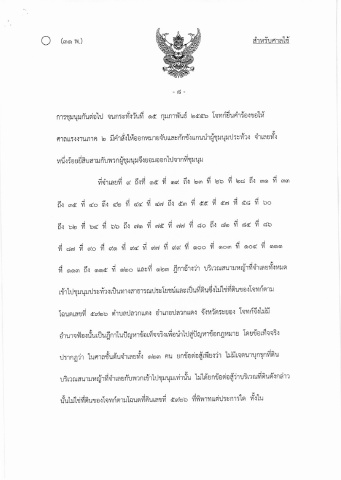 (๓๑ พ.)
สำหรับศาลใช้
- ๘ -
การชุมนุมกันต่อไป จนกระทั่งวันที่ ๑๕ กุมภาพันธ์ ๒๕๕๖ โจทก์ยื่นคำร้องขอให้
ศาลแรงงานภาค ๒ มีคำสั่งให้ออกหมายจับและกักขังแกนนำผู้ชุมนุมประท้วง จำเลยทั้ง
หนึ่งร้อยยี่สิบสามกับพวกผู้ชุมนุมจึงยอมออกไปจากที่ชุมนุม
ที่จำเลยที่ ๙ ถึงที่ ๑๕ ที่ ๑๙ ถึง ๒๓ ที่ ๒๖ ที่ ๒๘ ถึง ๓๑ ที่ ๓๓
ถึง ๓๕ ที่ ๔๐ ถึง ๔๒ ที่ ๔๔ ที่ ๔๗ ถึง ๕๓ ที่ ๕๕ ที่ ๕๗ ที่ ๕๘ ที่ ๖๐
ถึง ๖๒ ที่ ๖๔ ที่ ๖๖ ถึง ๗๑ ที่ ๗๕ ที่ ๗๗ ที่ ๘๐ ถึง ๘๒ ที่ ๘๔ ที่ ๘๖
ที่ ๘๗ ที่ ๙๐ ที่ ๙๑ ที่ ๙๔ ที่ ๙๗ ที่ ๙๙ ที่ ๑๐๐ ที่ ๑๐๓ ที่ ๑๐๔ ที่ ๑๑๑
ที่ ๑๑๓ ถึง ๑๑๕ ที่ ๑๒๐ และที่ ๑๒๓ ฎีกาอ้างว่า บริเวณสนามหญ้าที่จำเลยทั้งหมด
เข้าไปชุมนุมประท้วงเป็นทางสาธารณประโยชน์และเป็นที่ดินซึ่งไม่ใช่ที่ดินของโจทก์ตาม
โฉนดเลขที่ ๕๙๒๖ ตำบลปลวกแดง อำเภอปลวกแดง จังหวัดระยอง โจทก์จึงไม่มี
อำนาจฟ้องนั้นเป็นฎีกาในปัญหาข้อเท็จจริงเพื่อนำไปสู่ปัญหาข้อกฎหมาย โดยข้อเท็จจริง
ปรากฏว่า ในศาลชั้นต้นจำเลยทั้ง ๑๒๓ คน ยกข้อต่อสู้เพียงว่า ไม่มีเจตนาบุกรุกที่ดิน
บริเวณสนามหญ้าที่จำเลยกับพวกเข้าไปชุมนุมเท่านั้น ไม่ได้ยกข้อต่อสู้ว่าบริเวณที่ดินดังกล่าว
นั้นไม่ใช่ที่ดินของโจทก์ตามโฉนดที่ดินเลขที่ ๕๙๒๖ ที่พิพาทแต่ประการใด ทั้งใน